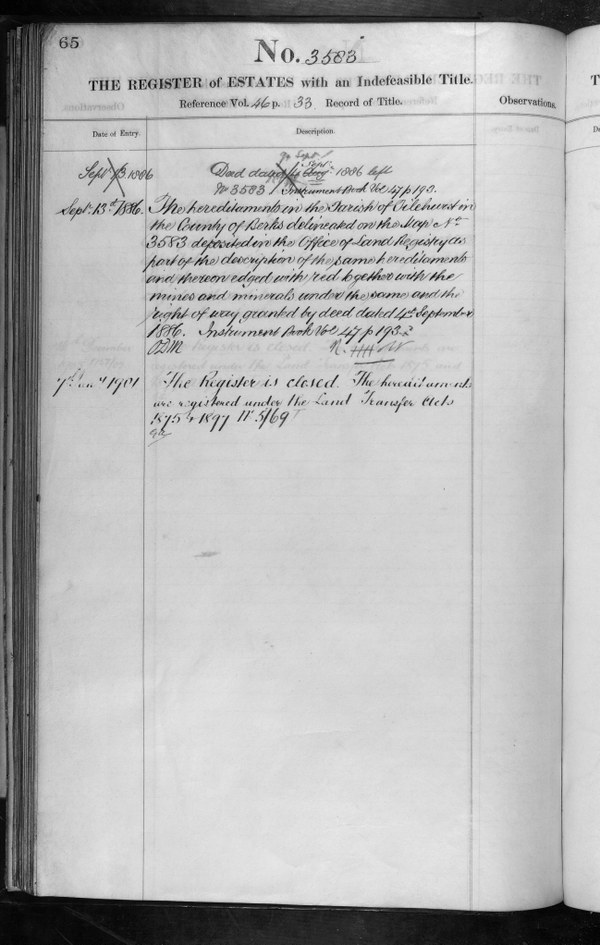 65
No. 3583
THE REGISTER of ESTATES with an Indefeasible Title.
Reference Vol. 46 p. 33 Record of Title.
Observations.
Date of Entry.
Description.
Septr 13 1886
Deed dated Sept: 1886 left
No 3583 Instrument Book Vol 47 p 193.
Septr. 13th 1886.
The hereditaments in the Parish of Tilehurst in
the County of Berks delineated on the Map No.
3583 deposited in the Office of Land Registry as
part of the description of the same hereditaments
and thereon edged with red together with the
mines and minerals under the same and the
right of way granted by deed dated 4th September
1886. Instrument Book Vol 47 p 193
1901
The Register is closed. The hereditaments
are registered under the Land Transfer Acts
1875 & 1897 No 5169